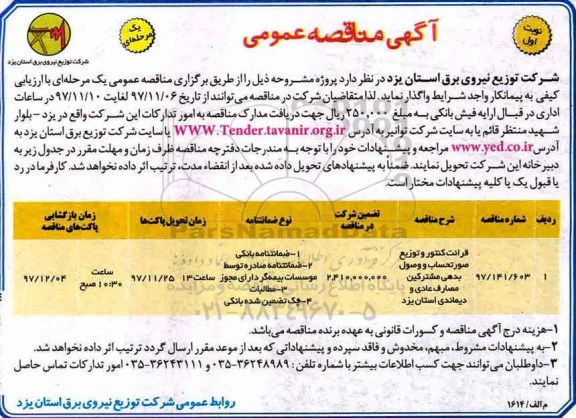 آگهی مناقصه عمومی
نوبت اول
یک مرحله‌ای
شرکت توزیع نیروی برق استان یزد
شرکت توزیع نیروی برق استان یزد در نظر دارد پروژه مشروحه ذیل را از طریق برگزاری مناقصه عمومی یک مرحله‌ای با ارزیابی
کیفی به پیمانکار واجد شرایط واگذار نماید. لذا متقاضیان شرکت در مناقصه می‌توانند از تاریخ ۹۷/۱۱/۰۶ لغایت ۹۷/۱۱/۱۰ در ساعات
اداری در قبال ارایه فیش بانکی به مبلغ ۳۵۰.۰۰۰ ریال جهت دریافت مدارک مناقصه به امور تدارکات این شرکت واقع در یزد - بلوار
شهید منتظر قائم یا به سایت شرکت توانیر به آدرس WWW.Tender.tavanir.org.ir یا سایت شرکت توزیع برق استان یزد به
آدرس www.yed.co.ir مراجعه و پیشنهادات خود را با توجه به مندرجات دفترچه مناقصه ظرف زمان و مهلت مقرر در جدول زیر به
دبیرخانه این شرکت تحویل نمایند. ضمناً به پیشنهادهای تحویل داده شده بعد از انقضاء مدت، ترتیب اثر داده نخواهد شد. کارفرما در رد
یا قبول یک یا کلیه پیشنهادات مختار است.
ردیف شماره مناقصه شرح مناقصه تضمین شرکت در مناقصه نوع ضمانتنامه زمان تحویل پاکت‌ها زمان بازگشایی پاکت‌های مناقصه
۱ ۹۷/۱۴۱/۶۰۳
قرائت کنتور و توزیع
صورتحساب و وصول
بدهی مشترکین
مصارف عادی و
دیماندی استان یزد
۲.۴۱۰.۰۰۰.۰۰۰
۱-ضمانتنامه بانکی
۲-ضمانتنامه صادره توسط
موسسات بیمه‌گر دارای مجوز
۳-مطالبات
۴-چک تضمین شده بانکی
ساعت ۱۳ ۹۷/۱۱/۲۵
ساعت ۱۰:۳۰ صبح ۹۷/۱۲/۰۴
۱-هزینه درج آگهی مناقصه و کسورات قانونی به عهده برنده مناقصه می‌باشد.
۲-به پیشنهادات مشروط، مبهم، مخدوش و فاقد سپرده و پیشنهاداتی که بعد از موعد مقرر ارسال گردد ترتیب اثر داده نخواهد شد.
۳-داوطلبان می‌توانند جهت کسب اطلاعات بیشتر با شماره تلفن: ۳۶۲۴۸۹۸۹-۰۳۵ و ۳۶۲۴۳۱۱۱-۰۳۵ امور تدارکات تماس حاصل
نمایند.
روابط عمومی شرکت توزیع نیروی برق استان یزد
م الف/۱۶۱۴
ParsNamadData
۰۲۱-۸۸۳۴۹۶۷۰-۵